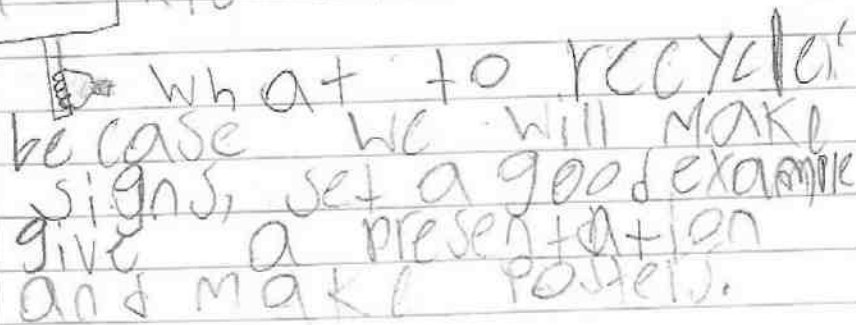 what to recycle
becase we will make
signs, set a good example
give a presentation
and make posters.